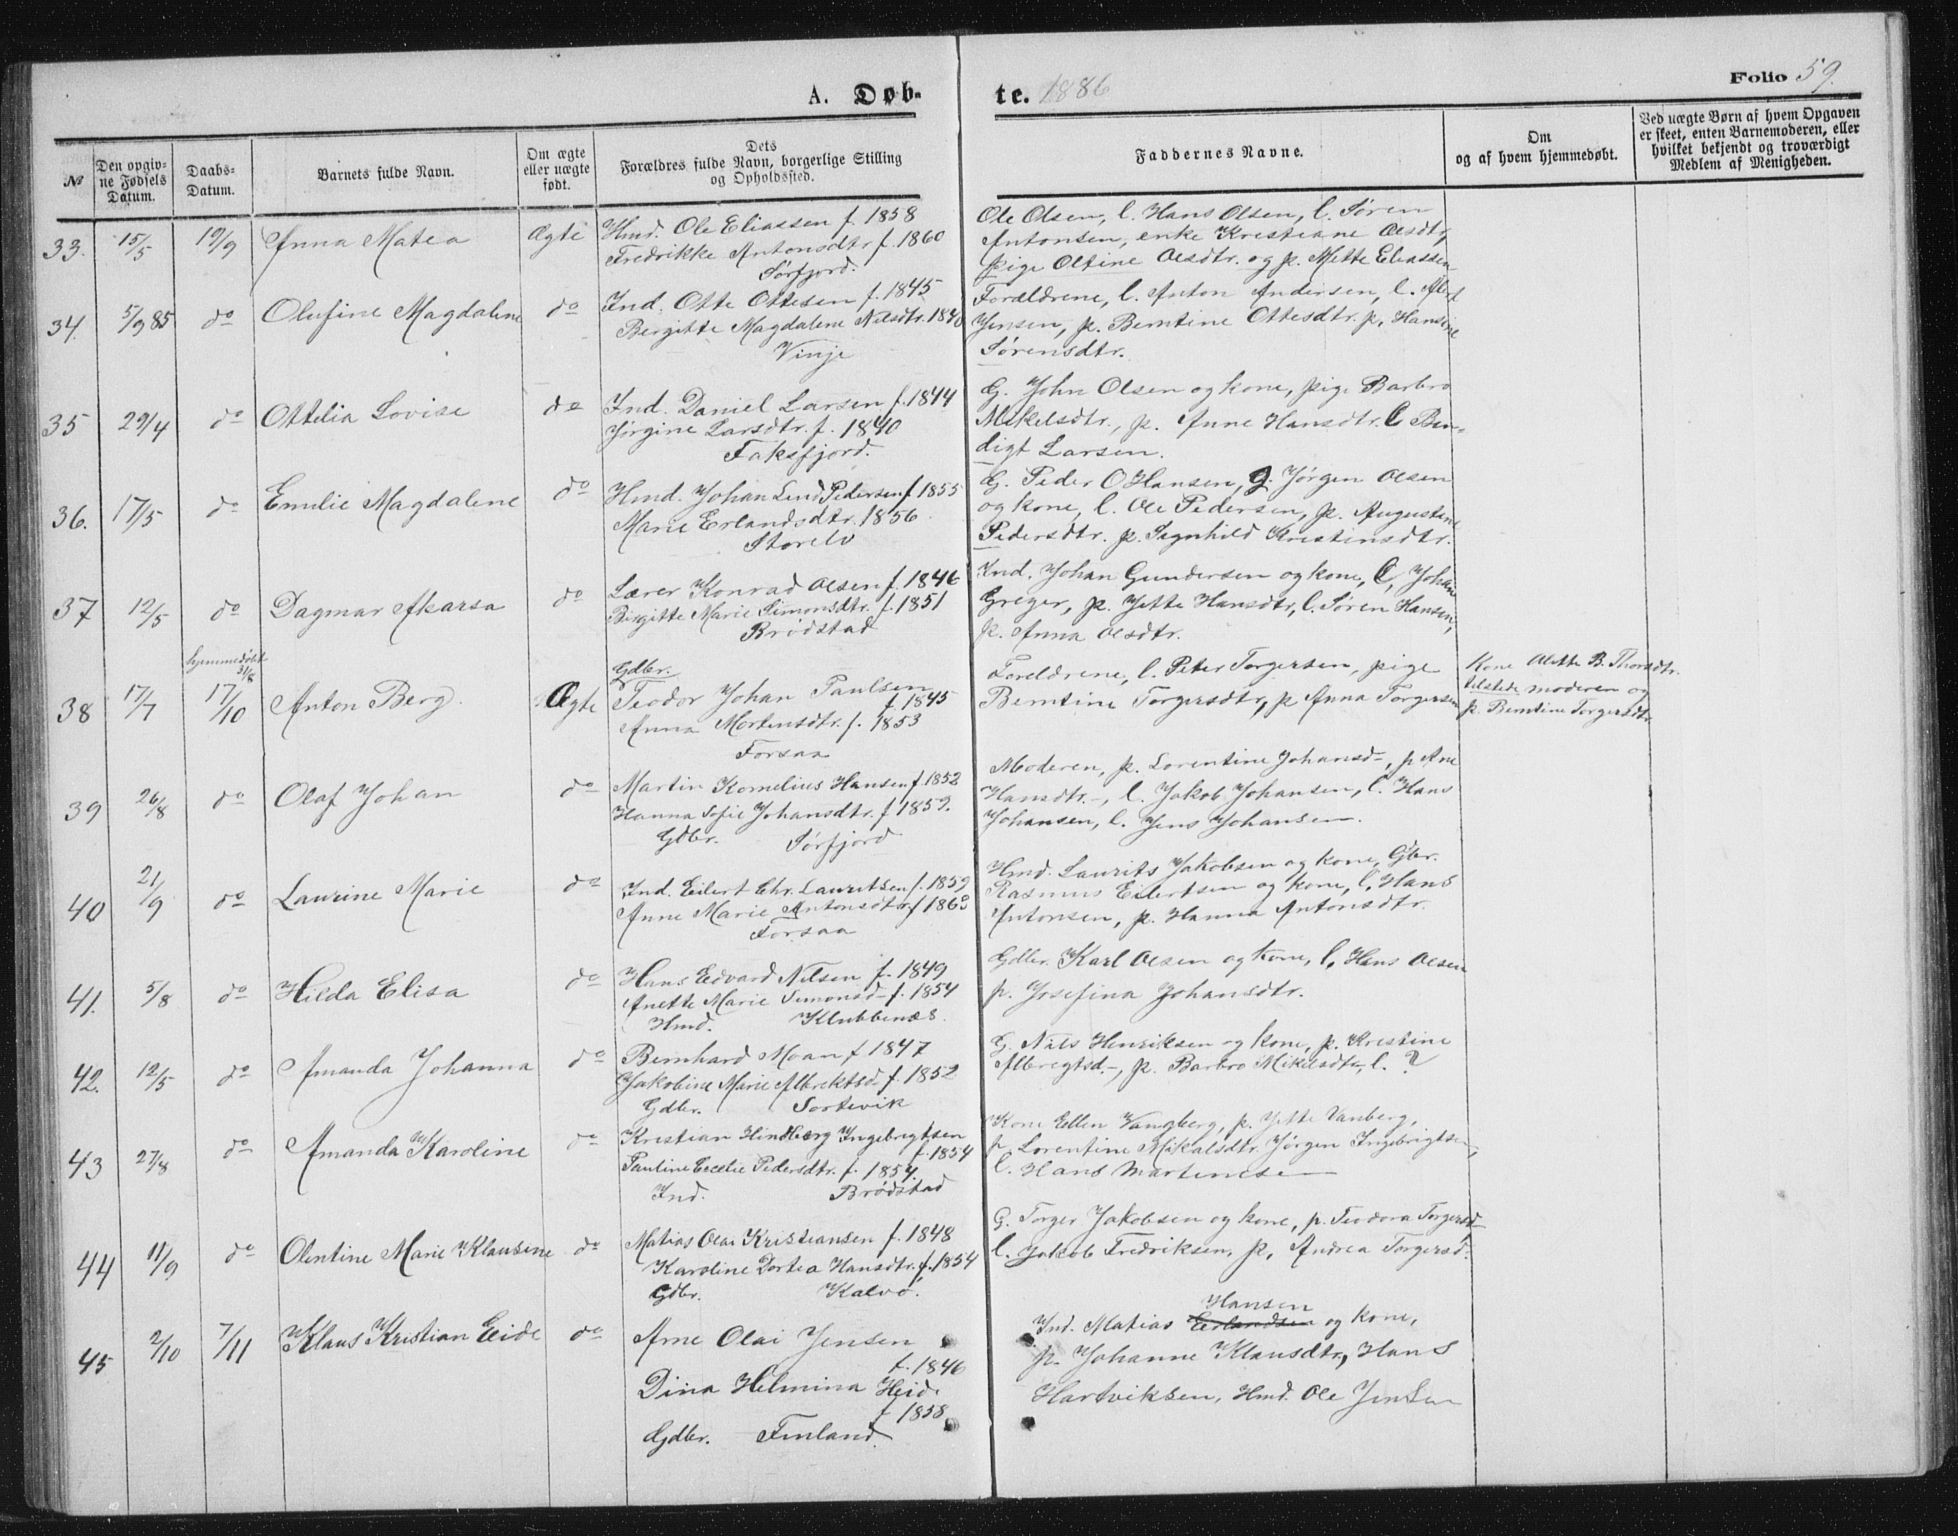 A. Døb- te. 1886
Folio 59.
№
Den opgiv-
ne Fødsels
Datum.
Daabs-
Datum.
Barnets fulde Navn.
Om ægte
eller uægte
født.
Dets
Forældres fulde Navn, borgerlige Stilling
og Opholdssted.
Faddernes Navne.
Om
og af hvem hjemmedøbt.
Ved uægte Børn af hvem Opgaven
er skeet, enten Barnemoderen, eller
hvilket bekjendt og troværdigt
Medlem af Menigheden.
33. 15/5 19/9 Anna Matea Ægte
Hmd. Ole Eliassen f. 1858
Fredrikke Antonsdtr f. 1860
Sørfjord.
Ole Olsen, l. Hans Olsen, l. Søren
Antonsen, enke Kristiane Olsdtr,
pige Oltine Olsdtr. og p. Mette Eliassen
34. 5/9 85 do Olufine Magdalene do
Ind. Otte Ottesen f. 1845
Bergitte Magdalene Nilsdtr. 1840
Vinje
Forældrene, l. Anton Andersen, l.
Jensen, p. Berntine Ottesdtr. p. Hansine
Sørensdtr.
35 29/4 do Ottelia Lovise do
Ind. Daniel Larsen f. 1844
Jørgine Larsdtr. f. 1840
Faksfjord.
G. John Olsen og kone, pige Barbro
Mikelsdtr., p. Anne Hansdtr. l Ben-
digt Larsen.
36. 17/5 do Emilie Magdalene do
Hmd. Johan Lind Pedersen f 1855
Marie Erlandsdtr. 1856
Storelv
G. Peder O Hansen, g. Jørgen Olsen
og kone, l. Ole Pedersen, p. Augustine
Pedersdtr. p. Sagnhild Kristinsdtr.
37 12/5 do Dagmar Akarsa do
Lærer Konrad Olsen f. 1846
Birgitte Marie Simonsdtr. f. 1851
Brødstad
Ind. Johan Gundersen og kone, l. Johan
Greger, p. Jette Hansdtr, l. Søren Hansen,
p. Anna Olsdtr.
hjemmedøbt
31/8
38 17/7 17/10 Anton Berg. Ægte
Gdbr.
Teodor Johan Paulsen
f 1845
Anna Mortensdtr. f. 1853
Forsaa
Foreldrene, l. Peter Torgersen, pige
Berntine Torgersdtr, p Anna Torgersen
Kone Alette B. Thorsdtr.
tilstede moderen og
p. Berntine Torgersdtr
39 26/8 do Olaf Johan do
Martin Kornelius Hansen f 1852
Hanna Sofie Johansdtr. f 1859.
Gdbr. Sørfjord
Moderen, p. Lorentine Johansd-, p Ane
Hansdtr-, l. Jakob Johansen, l. Hans
Johansen, l. Jens Johansen.
40 21/9 do Laurine Marie do
Ind. Eilert Chr. Lauritsen f. 1859
Anne Marie Antonsdtr f 1863
Forsaa
Hmd. Laurits Jakobsen og kone, Gbr.
Rasmus Eilertsen og kone, l. Hans
Antonsen, p. Hanna Antonsdtr.
41. 5/8 do Hilda Elisa do
Hans Edvard Nilsen f. 1849
Anette Marie Simonsd- f. 1854
Hmd. Klubbenæs.
Gdbr. Karl Olsen og kone, l. Hans Olsen
p. Josefina Johansdtr.
42. 12/5 do Amanda Johanna do
Bernhard Moan f 1847
Jakobine Marie Albrektsd- f. 1852
Gdbr. Sortevik
G. Nils Henriksen og kone, p. Kristine
Albregtsd.-, p. Barbro Mikelsdtr, l. ?
43 27/8 do Amanda Karoline do
Kristian Hindberg Ingebrigtsen
f. 1854
Pauline Cecelie Pedersdtr. f. 1854.
Ind. Brødstad
Kone Ellen Vangberg, p. Jette Vanberg,
p. Lorentine Mikalsdtr. Jørgen Ingebrigtsen,
l. Hans Martinsen
44 11/9 do Olentine Marie Klausine do
Matias Olai Kristiansen f. 1848
Karoline Dortea Hansdtr. f. 1854
Gdbr. Kalvø.
G. Torger Jakobsen og kone, p. Teodora Torgersd-
l. Jakob Fredriksen, p. Andrea Torgersd-.
45 2/10 7/11 Klaus Kristian Eide do
Arne Olai Jensen
f. 1846
Dina Helmina Heide
f 1858.
Gdbr. Finland.
Hansen
Ind. Matias Erlandsen og kone,
p. Johanne Klausdtr, Hans
Hartviksen, Hmd. Ole Jensen